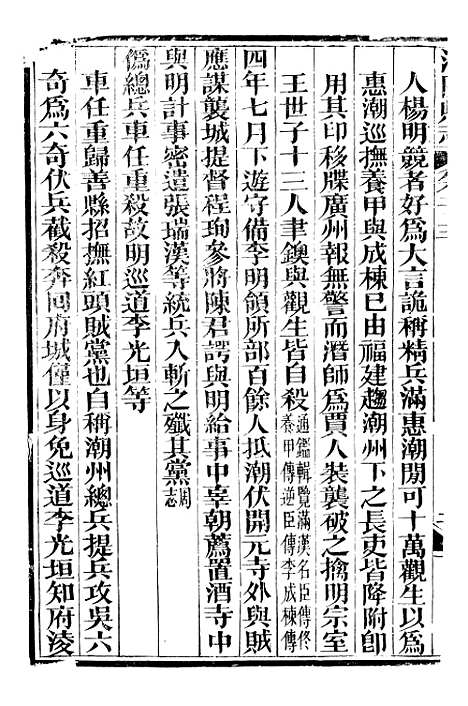 人楊明競者好爲大言詭稱精兵滿惠潮閒可十萬觀生以爲
惠潮巡撫養甲與成棟已由福建趨潮州下之長吏皆降附卽
用其印移牒廣州報無警而潛師爲賈人裝襲破之擒明宗室
王世子十三人聿鐭與觀生皆自殺通鑑輯覽滿漢名臣傳佟養甲傳逆臣傳李成棟傳
四年七月下遊守備李明領所部百餘人抵潮伏開元寺外與賊
應謀襲城提督程珣參將陳君諤與明給事中辜朝薦置酒寺中
與明計事密遣張瑞漢等統兵入斬之殲其黨周志
僞總兵車任重殺故明巡道李光垣等
車任重歸善縣招撫紅頭賊黨也自稱潮州總兵提兵攻吳六
奇爲六奇伏兵截殺奔回府城僅以身免巡道李光垣知府淩